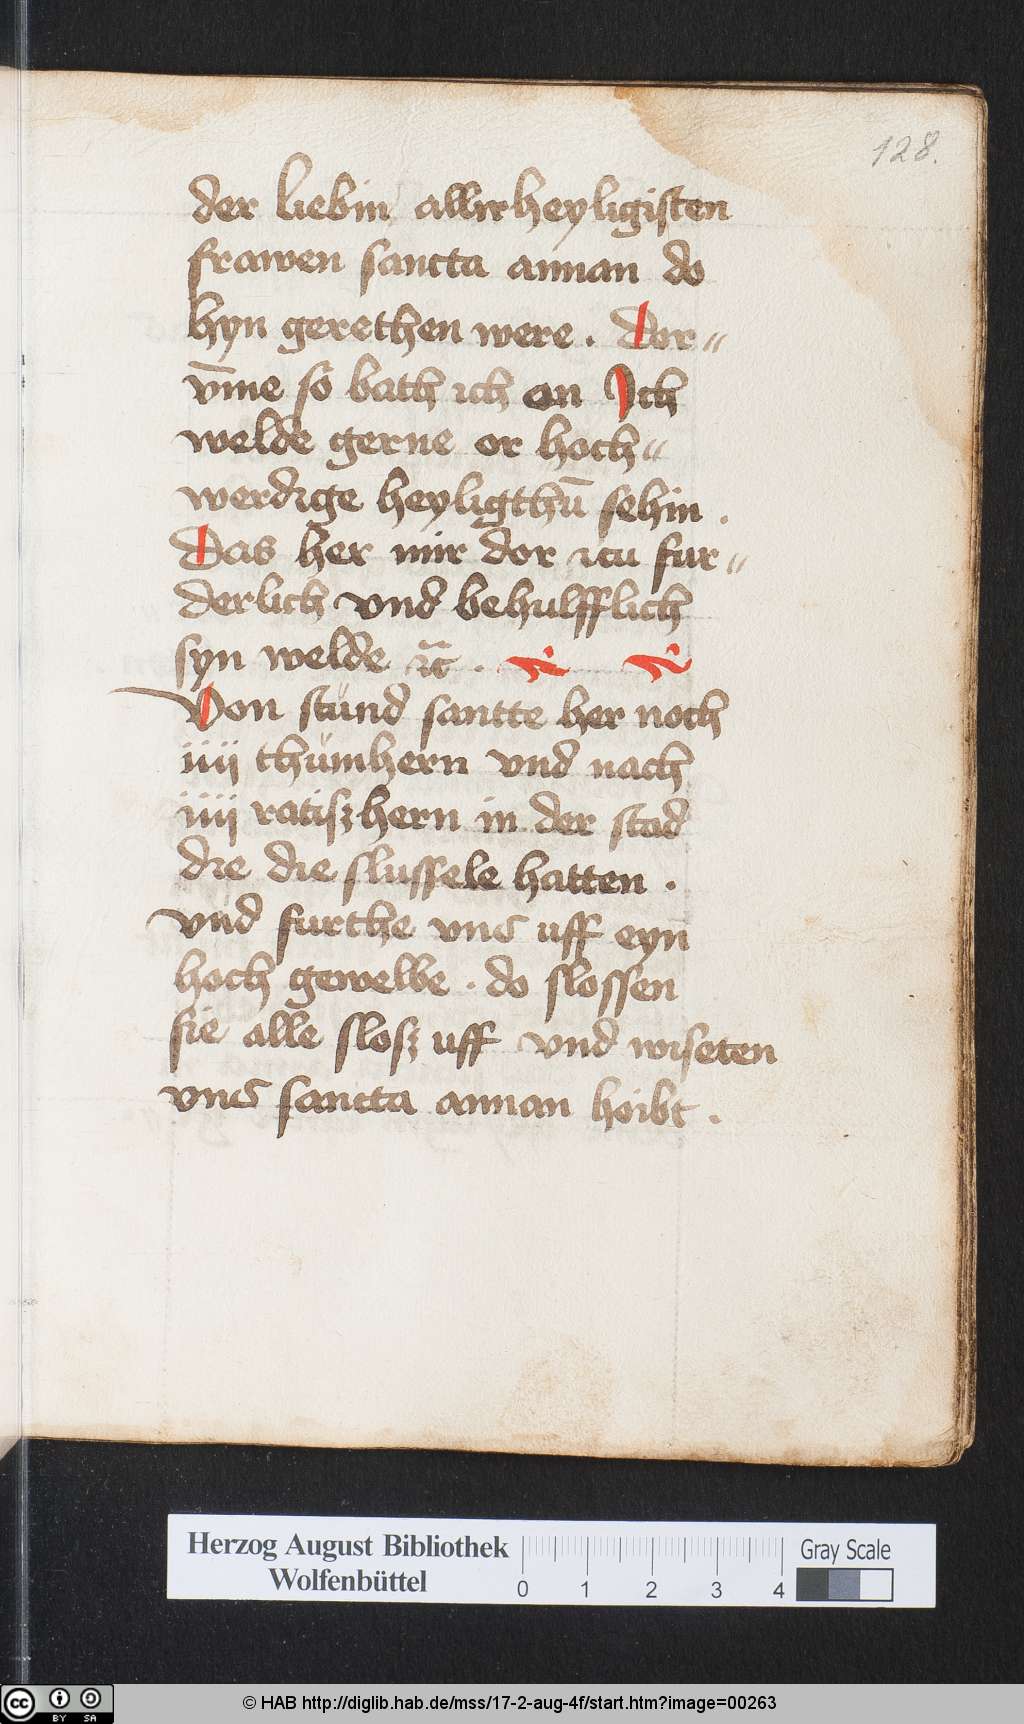 128.
der liebin allirheyligisten
frawen sancta annan do
hyn gerethen were . Dor=
v̄me so bath ich on Ich
welde gerne or hoch=
werdige heyligthū sehin .
Das her mir dor zcu fur=
derlich vnd behulfflich
syn welde ꝛc̃ .
Von stund santte her noch
iiij thumhern vnd nach
iiij ratiszhern in der stad
die die slussele hatten .
vnd furthe vns uff eyn
hoch gewelbe . do slossen
sie alle slosz uff vnd wiseten
vns sancta annan hoibt .
Herzog August Bibliothek
Wolfenbüttel
0 1 2 3 4
Gray Scale
cc BY SA
© HAB http://diglib.hab.de/mss/17-2-aug-4f/start.htm?image=00263